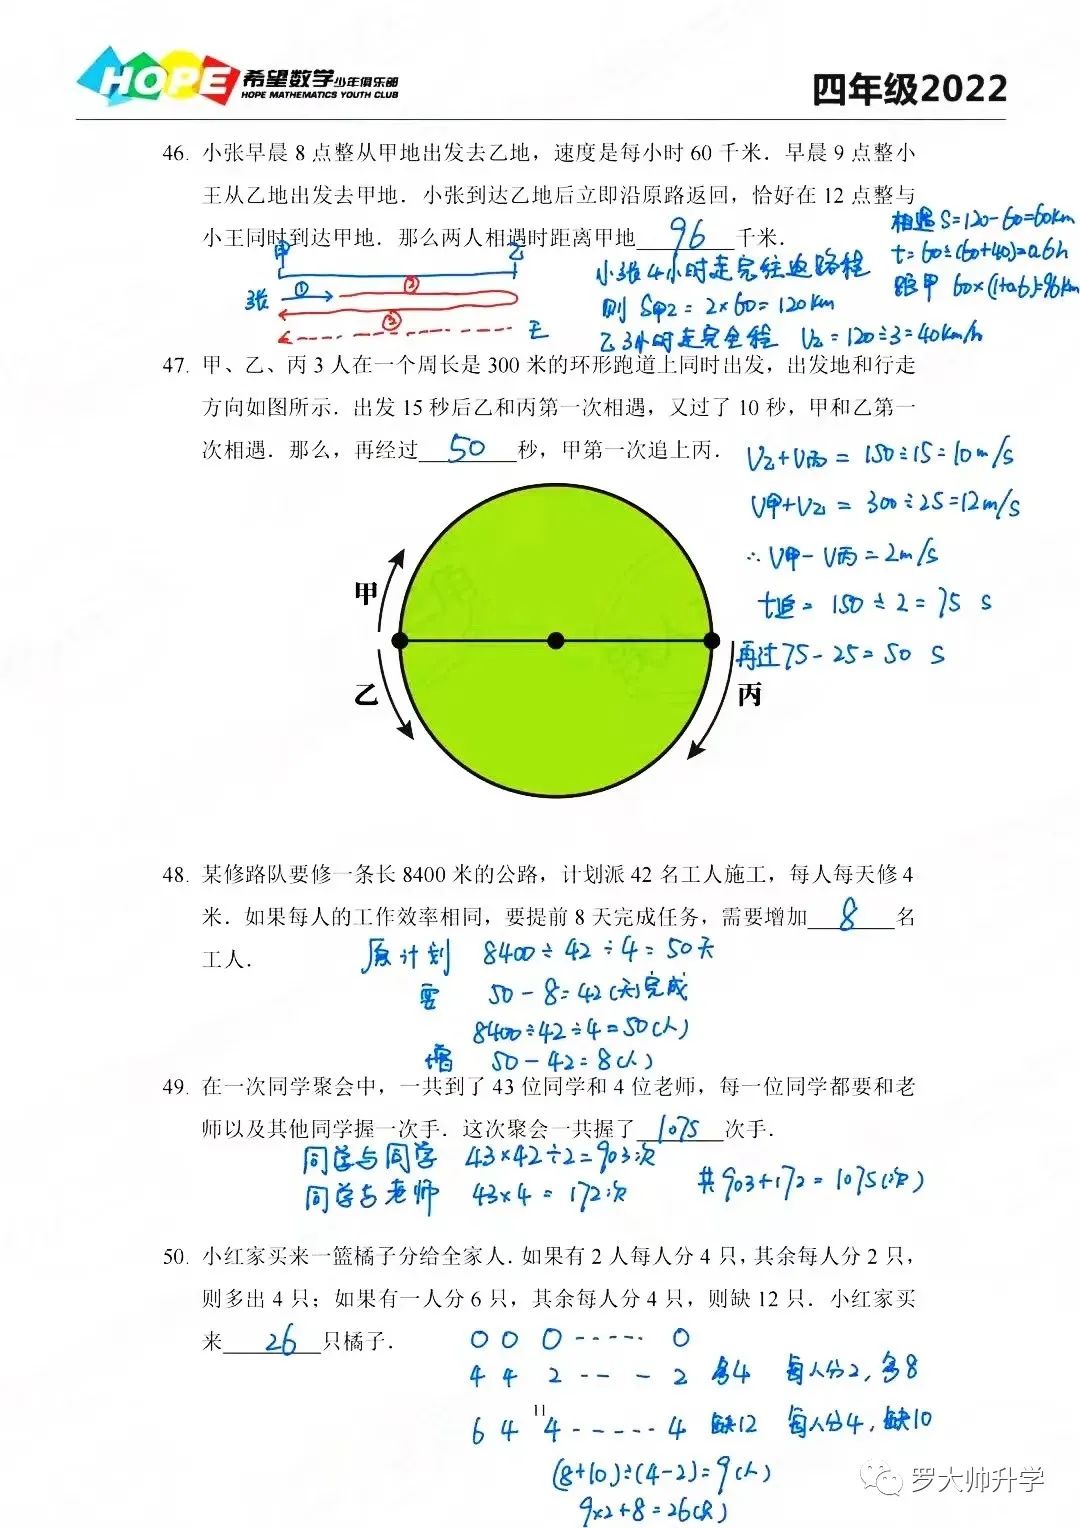 HOPE 希望数学少年俱乐部
HOPE MATHEMATICS YOUTH CLUB
四年级2022
46. 小张早晨 8 点整从甲地出发去乙地，速度是每小时 60 千米．早晨 9 点整小
王从乙地出发去甲地．小张到达乙地后立即沿原路返回，恰好在 12 点整与
小王同时到达甲地．那么两人相遇时距离甲地 96 千米．
相遇S=120-60=60km
t=60÷(60+40)=0.6h
距甲 60×(1+0.6)=96km
甲 乙
张 ① ②
③ 王
小张4小时走完往返路程
则 S甲乙=2×60=120km
乙3小时走完全程 V乙=120÷3=40km/h
47. 甲、乙、丙 3 人在一个周长是 300 米的环形跑道上同时出发，出发地和行走
方向如图所示．出发 15 秒后乙和丙第一次相遇，又过了 10 秒，甲和乙第一
次相遇．那么，再经过 50 秒，甲第一次追上丙．
V乙+V丙=150÷15=10m/s
V甲+V乙=300÷25=12m/s
∴V甲-V丙=2m/s
t追=150÷2=75 s
再过75-25=50 s
甲
乙
丙
48. 某修路队要修一条长 8400 米的公路，计划派 42 名工人施工，每人每天修 4
米．如果每人的工作效率相同，要提前 8 天完成任务，需要增加 8 名
工人．
原计划 8400÷42÷4=50天
需 50-8=42(天)完成
8400÷42÷4=50(人)
增 50-42=8(人)
49. 在一次同学聚会中，一共到了 43 位同学和 4 位老师，每一位同学都要和老
师以及其他同学握一次手．这次聚会一共握了 1075 次手．
同学与同学 43×42÷2=903次
同学与老师 43×4=172次
共903+172=1075(次)
50. 小红家买来一篮橘子分给全家人．如果有 2 人每人分 4 只，其余每人分 2 只，
则多出 4 只；如果有一人分 6 只，其余每人分 4 只，则缺 12 只．小红家买
来 26 只橘子．
O O O ----- O
4 4 2 --- 2 多4 每人分2，多8
11
6 4 4 ----- 4 缺12 每人分4，缺10
(8+10)÷(4-2)=9(人)
9×2+8=26(只)
罗大帅升学